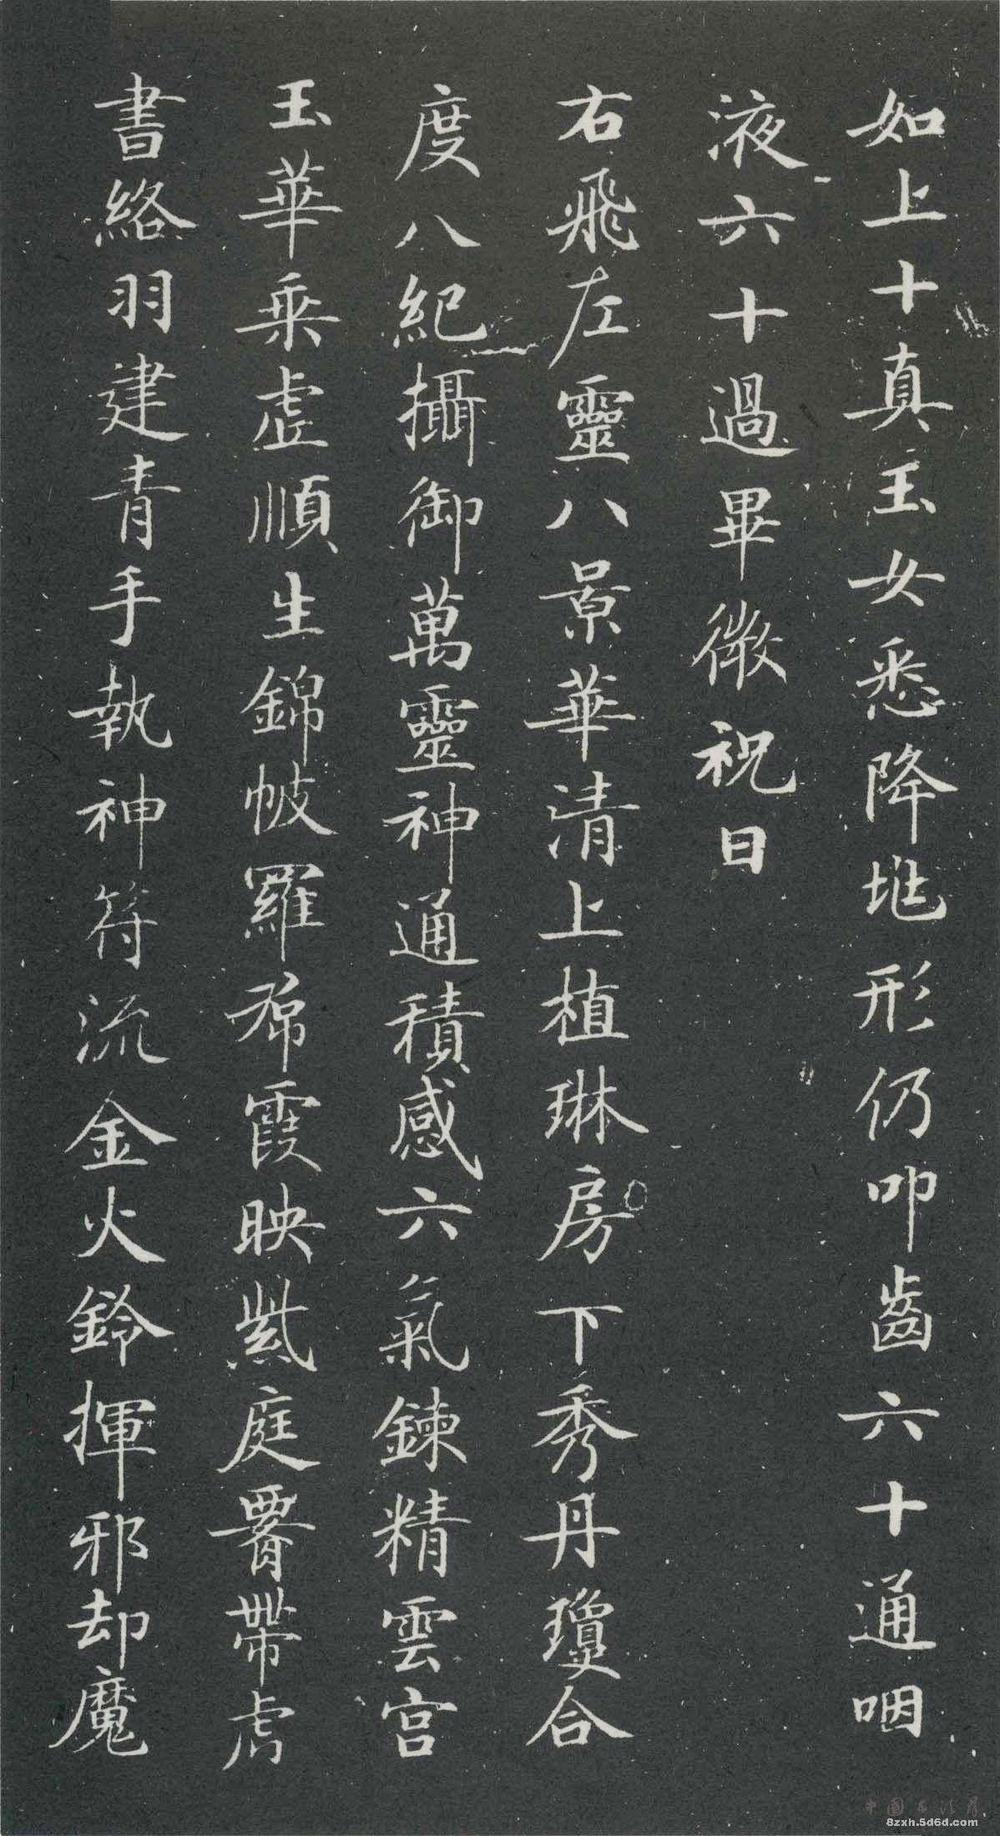 如上十真玉女悉降兆形仍叩齒六十通咽
液六十過畢微祝曰
右飛左靈八景華清上植琳房下秀丹瓊合
度八紀攝御萬靈神通積感六氣鍊精雲宮
玉華乗虛順生錦帔羅帬霞映紫庭腰帶虎
書絡羽建青手執神符流金火鈴揮邪却魔
8zxh.5d6d.com